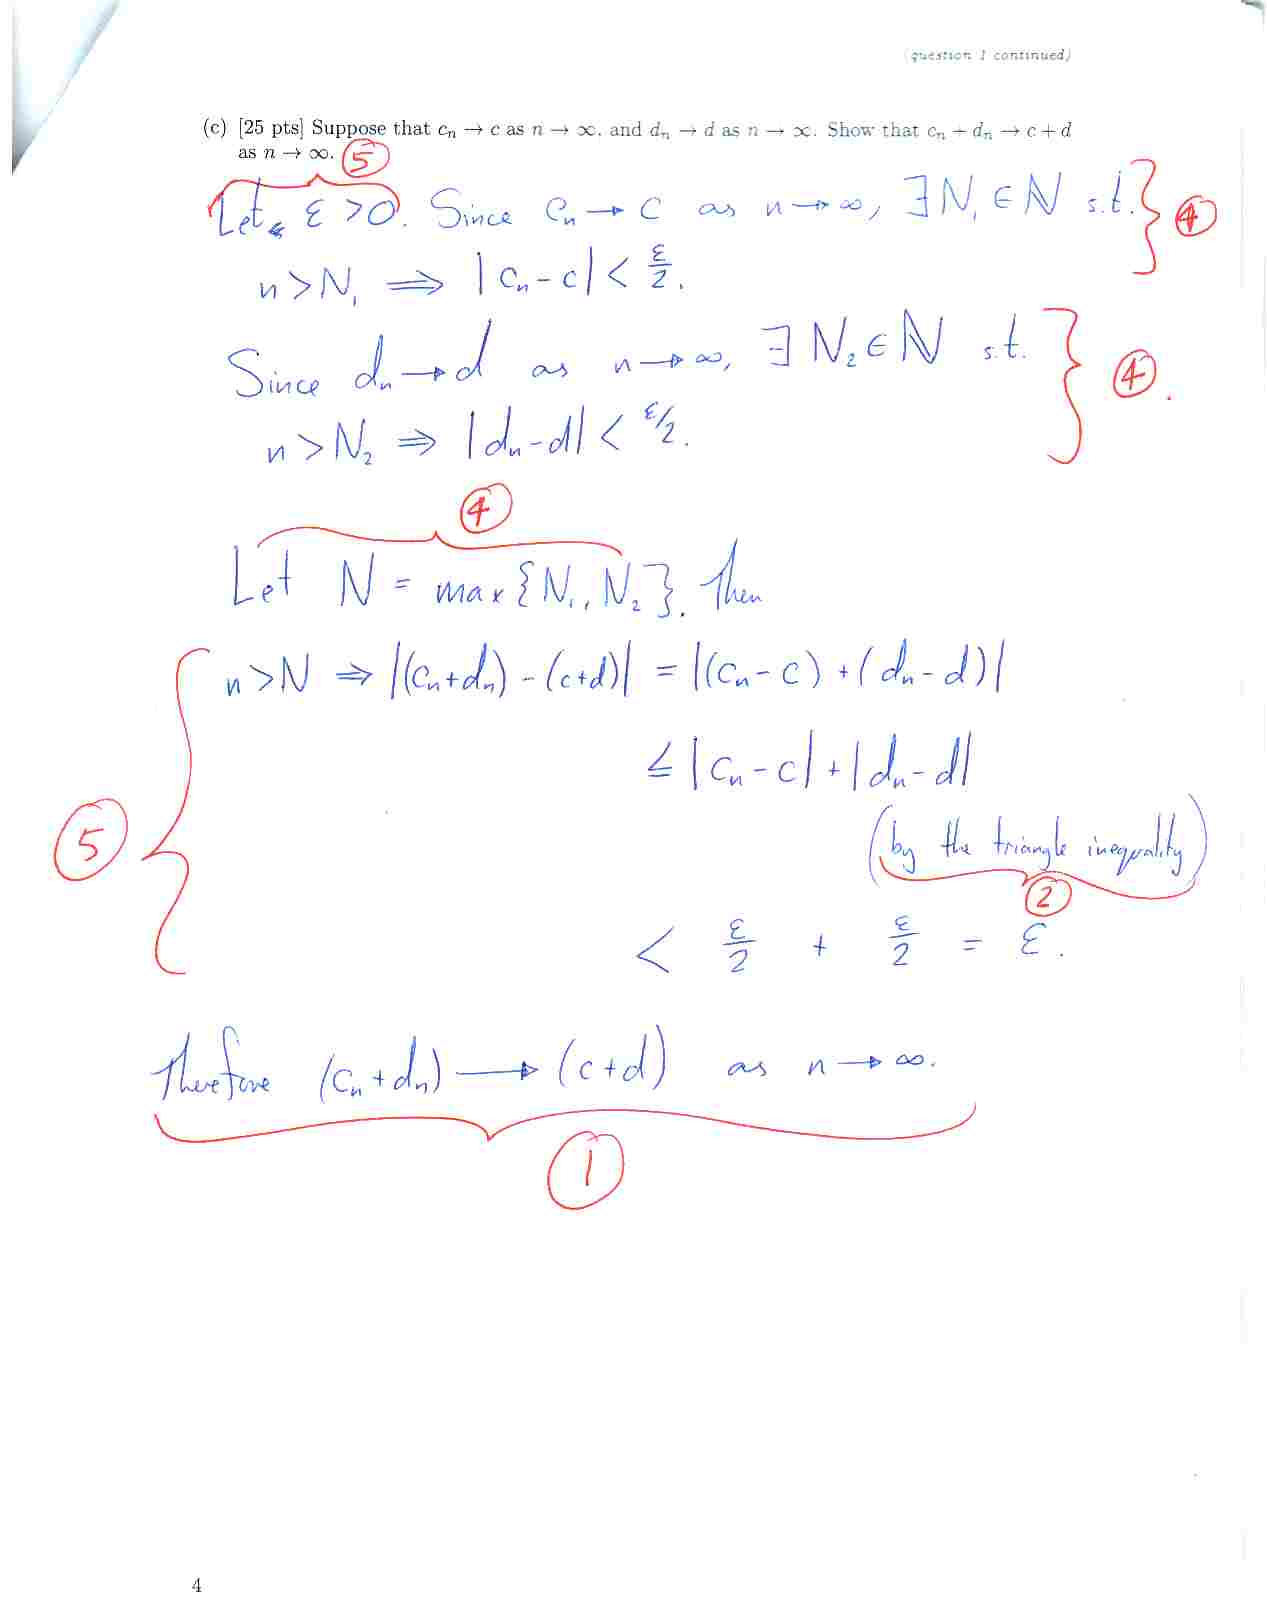 (question 1 continued)
(c) [25 pts] Suppose that cₙ → c as n → ∞, and dₙ → d as n → ∞. Show that cₙ + dₙ → c + d
as n → ∞. ⑤
Let ε > 0. Since cₙ → c as n → ∞, ∃ N₁ ∈ ℕ s.t. ④
n > N₁ ⟹ |cₙ - c| < ε/2.
Since dₙ → d as n → ∞, ∃ N₂ ∈ ℕ s.t. ④
n > N₂ ⟹ |dₙ - d| < ε/2.
④
Let N = max{N₁, N₂}. Then
n > N ⟹ |(cₙ + dₙ) - (c + d)| = |(cₙ - c) + (dₙ - d)|
≤ |cₙ - c| + |dₙ - d|
⑤ (by the triangle inequality)
②
< ε/2 + ε/2 = ε.
Therefore (cₙ + dₙ) ⟶ (c + d) as n → ∞.
①
4